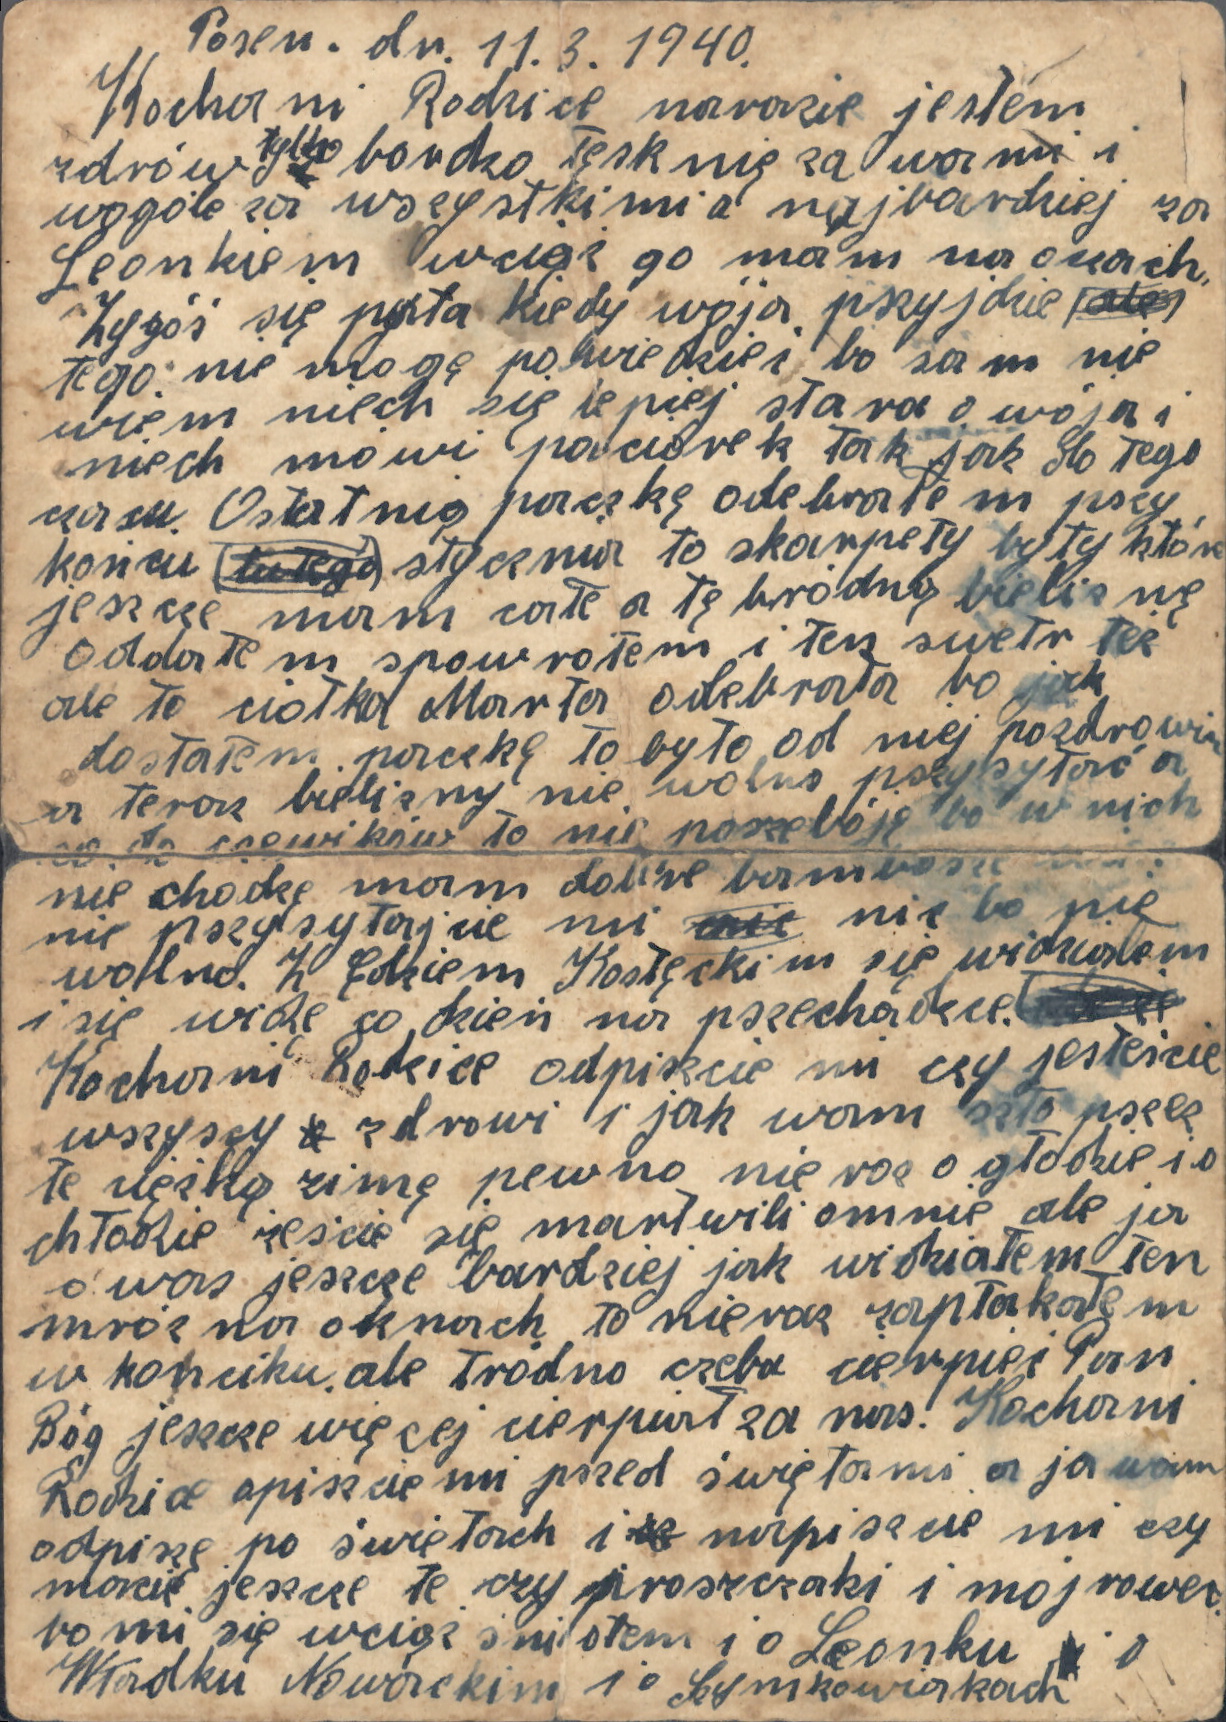 Posen. dn. 11.3.1940.
Kochani Rodzice narazie jestem
zdrów tylko bardzo tęsknię za wami i
wogóle za wszystkimi a najbardziej za
Leonkiem wciąż go mam na oczach.
Zygóś się pyta kiedy wója pszyjdzie
tego nie mogę powiedzieć bo sam nie
wiem niech się lepiej stara o wója i
niech mówi paciórek tak jak do tego
czasu. Ostatnią paczkę odebrałem pszy
końcu stycznia to skarpety były które
jeszcze mam całe a tę bródną bieliznę
oddałem spowrotem i ten swetr też
ale to ciotka Marta odebrała bo jak
dostałem paczkę to było od niej pozdrowin
a teraz bielizny nie wolno pszysyłać a
co do czewików to nie poszebóję bo w nich
nie chodzę mam dobre bambosze
nie pszysyłajcie mi nic bo nie
wolno. Z Edziem Kostęckim się widziałem
i się widzę co dzień na pszechadzce.
Kochani Rodzice odpiszcie mi czy jesteście
wszyscy zdrowi i jak wam szło pszez
te ciężką zimę pewno nie raz o głodzie i o
chłodzie żeście się martwili omnie ale ja
o was jeszcze bardziej jak widziałem ten
mróz na oknach to nieraz zapłakałem
w końciku. ale tródno czeba cierpieć Pan
Bóg jeszcze więcej cierpiał za nas. Kochani
Rodzice opiszcie mi pszed świętami a ja wam
odpiszę po świetach i napiszcie mi czy
macie jeszcze te czy proszczaki i moj rower
bo mi się wciąż śni otem i o Leonku i o
Władku Nowackim i o Szymkowiakach